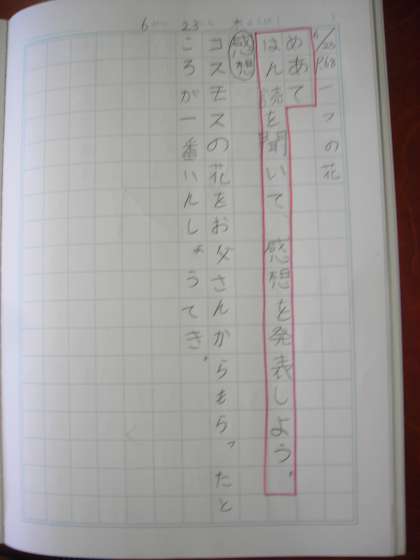 6 23
6/23 P68 一つの花
めあて
はん読を聞いて、感想を発表しよう。
感想
コスモスの花をお父さんからもらったと
ころが一番いんしょうてき。